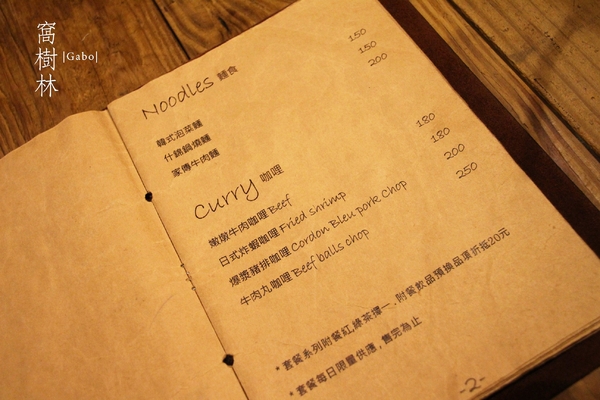 窩樹林
|Gabo|
Noodles 麵食
韓式泡菜麵 150
什錦鍋燒麵 150
家傳牛肉麵 200
Curry 咖哩
嫩燉牛肉咖哩 Beef 180
日式炸蝦咖哩 Fried shrimp 180
爆漿豬排咖哩 Cordon Bleu pork Chop 200
牛肉丸咖哩 Beef balls chop 250
*套餐系列附餐紅,綠茶擇一.附餐飲品預換品項折抵20元
*套餐每日限量供應,售完為止
-2-